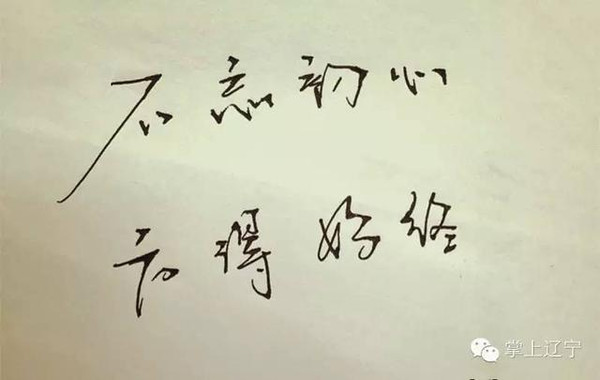 不忘初心
方得始终
掌上辽宁